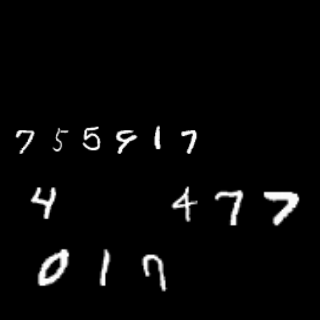 755917
4 477
017